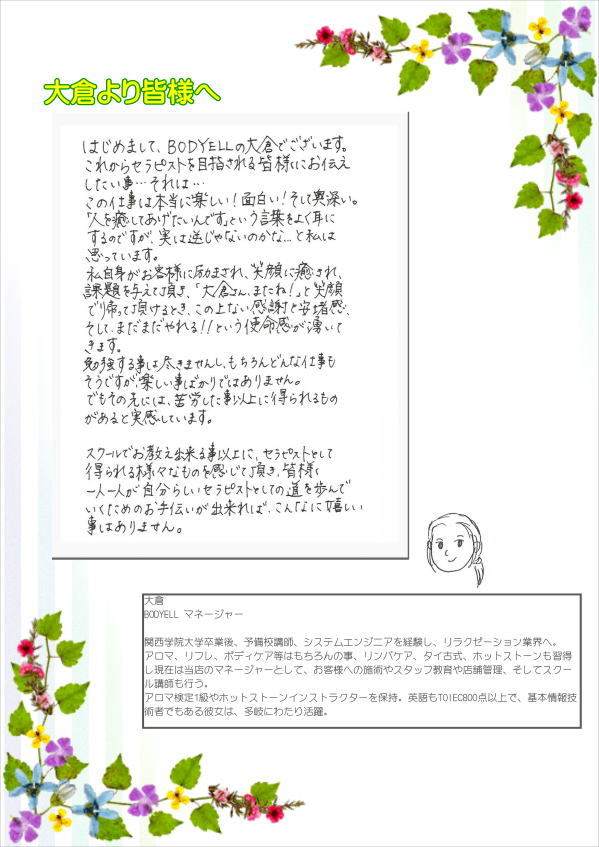 大倉より皆様へ
はじめまして、BODYELLの大倉でございます。
これからセラピストを目指される皆様にお伝え
したい事…それは…
この仕事は本当に楽しい！面白い！そして奥深い。
「人を癒してあげたいんです」という言葉をよく耳に
するのですが、実は逆じゃないのかな…と私は
思っています。
私自身がお客様に励まされ、笑顔に癒され、
課題を与えて頂き、「大倉さん、またね！」と笑顔
で帰って頂けるとき、この上ない感謝と安堵感、
そして、まだまだやれる！！という使命感が湧いて
きます。
勉強する事は尽きませんし、もちろんどんな仕事も
そうですが、楽しい事ばかりではありません。
でもその先には、苦労した事以上に得られるもの
があると実感しています。
スクールでお教え出来る事以上に、セラピストとして
得られる様々なものを感じて頂き、皆様
一人一人が自分らしいセラピストとしての道を歩んで
いくためのお手伝いが出来れば、こんなに嬉しい
事はありません。
大倉
BODYELL マネージャー
関西学院大学卒業後、予備校講師、システムエンジニアを経験し、リラクゼーション業界へ。
アロマ、リフレ、ボディケア等はもちろんの事、リンパケア、タイ古式、ホットストーンも習得
し現在は当店のマネージャーとして、お客様への施術やスタッフ教育や店舗管理、そしてスクー
ル講師も行う。
アロマ検定1級やホットストーンインストラクターを保持。英語もTOIEC800点以上で、基本情報技
術者でもある彼女は、多岐にわたり活躍。